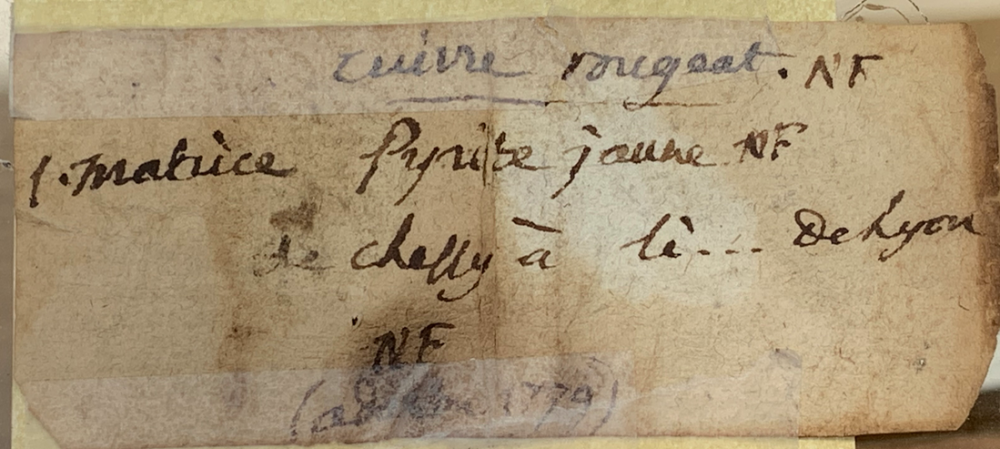 Cuivre rugeat. NF
1. matrice Pyrite jaune NF
de chessy à li... De Lyon
NF
1779)